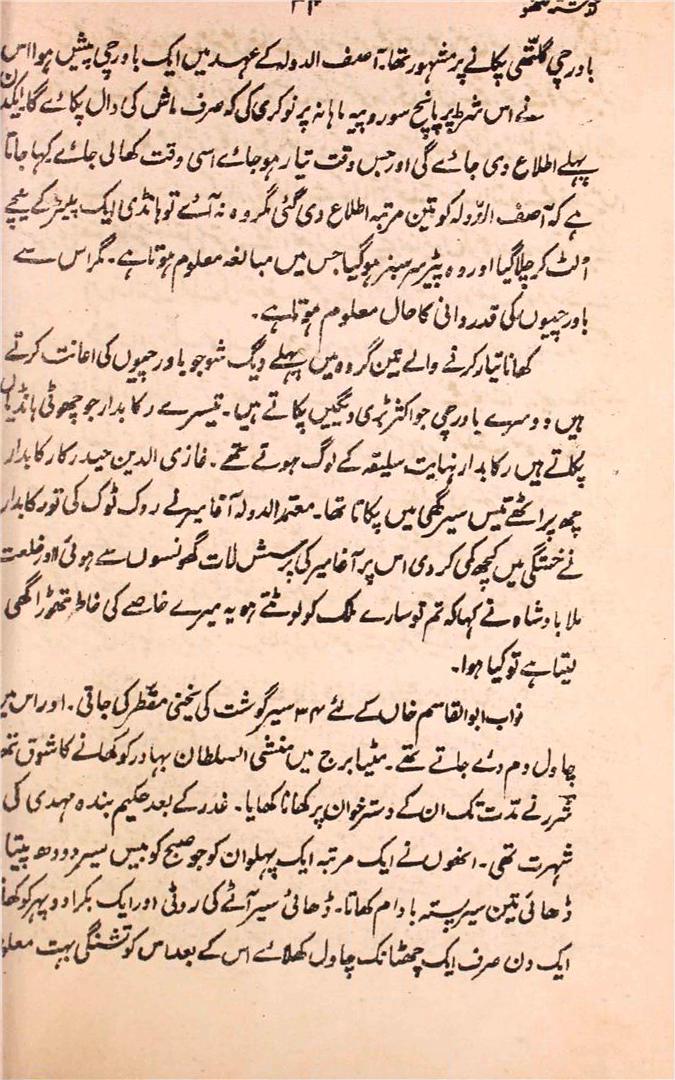 گذشتہ لکھنؤ ۳۴
باورچی گلتھی پکانے پر مشہور تھا۔ آصف الدولہ کے عہد میں ایک باورچی پیش ہوا اس
نے اس شرط پر پانچ سو روپیہ ماہانہ پر نوکری کی کہ صرف ماش کی دال پکائے گا۔ ایکدن
پہلے اطلاع دی جائے گی اور جس وقت تیار ہو جائے اسی وقت کھالی جائے کہا جاتا
ہے کہ آصف الدولہ کو تین مرتبہ اطلاع دی گئی مگر وہ نہ آئے تو ہانڈی ایک پیڑ کے نیچے
الٹ کر چلا گیا اور وہ پیڑ سرسبز ہو گیا جس میں مبالغہ معلوم ہوتا ہے۔ مگر اس سے
باورچیوں کی قدردانی کا حال معلوم ہوتا ہے۔
کھانا تیار کرنے والے تین گروہ میں پہلے دیگ شو جو باورچیوں کی اعانت کرتے
ہیں دوسرے باورچی جو اکثر بڑی دیگیں پکاتے ہیں۔ تیسرے رکابدار جو چھوٹی ہانڈیاں
پکاتے ہیں رکابدار نہایت سلیقہ کے لوگ ہوتے تھے۔ غازی الدین حیدر کا رکابدار
چھ پراٹھے تیس سیر گھی میں پکاتا تھا۔ معتمد الدولہ آغا میر نے روک ٹوک کی تو رکابدار
نے خستگی میں کچھ کمی کر دی اس پر آغا میر کی پرسش لات گھونسوں سے ہوئی اور خلعت
ملا بادشاہ نے کہا کہ تم تو سارے ملک کو لوٹتے ہو یہ میرے خاصے کی خاطر تھوڑا گھی
لیتا ہے تو کیا ہوا۔
نواب ابوالقاسم خاں کے لئے ۳۴ سیر گوشت کی یخنی مقطر کی جاتی۔ اور اس میں
چاول دم دئے جاتے تھے۔ مٹیا برج میں منشی السلطان بہادر کو کھانے کا شوق تھا
شرر نے مدت تک ان کے دسترخوان پر کھانا کھایا۔ غدر کے بعد حکیم بندہ مہدی کی
شہرت تھی۔ انھوں نے ایک مرتبہ ایک پہلوان کو جو صبح کو بیس سیر دودھ پیتا
ڈھائی تین سیر پستہ بادام کھاتا۔ ڈھائی سیر آٹے کی روٹی اور ایک بکرا دوپہر کو کھاتا
ایک دن صرف ایک چھٹانک چاول کھلائے اس کے بعد اس کو تشنگی بہت معلوم